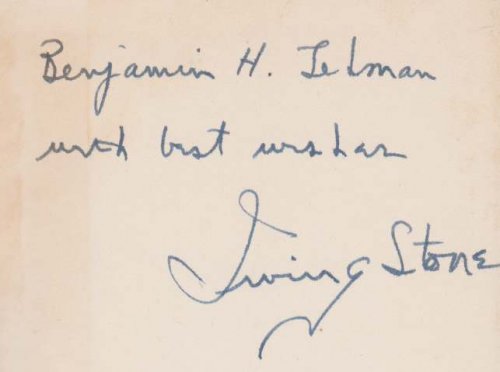 Benjamin H. Telman
with best wishes
Irving Stone